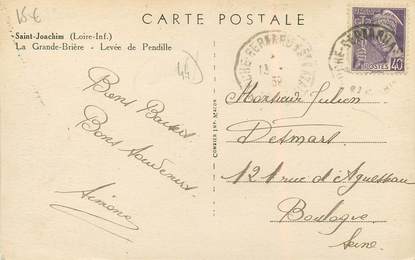 15€
CARTE POSTALE
Saint-Joachim (Loire-Inf.)
La Grande-Brière - Levée de Pendille
44
Bons Baisers
Bons Souvenirs
Simone
Monsieur Julien
Desmars
121 rue d'Aguesseau
Boulogne
Seine
POSTES 40